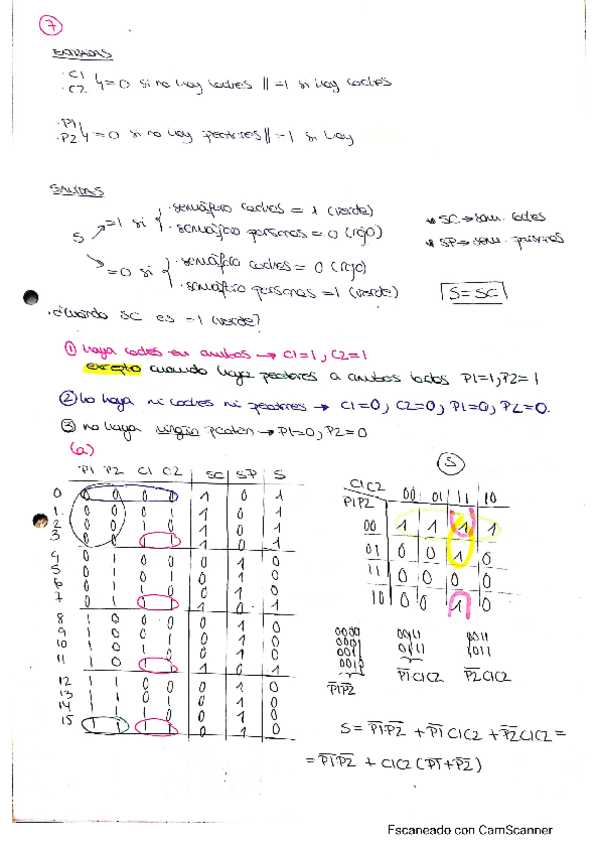 7
ENTRADAS
· C1
· C2 } = 0 si no hay coches || =1 si hay coches
· P1
· P2 } = 0 si no hay peatones || =1 si hay
SALIDAS
S =1 si { · semáforo coches = 1 (verde)
· semáforo personas = 0 (rojo)
=0 si { · semáforo coches = 0 (rojo)
· semáforo personas = 1 (verde)
* SC → sem. coches
* SP → sem. personas
S = SC
· ¿Cuando SC es =1 (verde)?
① haya coches en ambos → C1=1, C2=1
excepto cuando haya peatones a ambos lados P1=1, P2=1
② No haya ni coches ni peatones → C1=0, C2=0, P1=0, P2=0.
③ no haya ningún peatón → P1=0, P2=0
(a)
P1 P2 C1 C2 SC SP S
0 0 0 0 0 1 0 1
1 0 0 0 1 1 0 1
2 0 0 1 0 1 0 1
3 0 0 1 1 1 0 1
4 0 1 0 0 0 1 0
5 0 1 0 1 0 1 0
6 0 1 1 0 0 1 0
7 0 1 1 1 1 0 1
8 1 0 0 0 0 1 0
9 1 0 0 1 0 1 0
10 1 0 1 0 0 1 0
11 1 0 1 1 1 0 1
12 1 1 0 0 0 1 0
13 1 1 0 1 0 1 0
14 1 1 1 0 0 1 0
15 1 1 1 1 0 1 0
S
C1C2
P1P2 00 01 11 10
00 1 1 1 1
01 0 0 1 0
11 0 0 0 0
10 0 0 1 0
0000 0011 0011
0001 0111 1011
0011
0010
P̅1̅P̅2̅ P̅1̅C1C2 P̅2̅C1C2
S = P̅1̅P̅2̅ + P̅1̅ C1C2 + P̅2̅C1C2 =
= P̅1̅P̅2̅ + C1C2 (P̅1̅+P̅2̅)
Escaneado con CamScanner